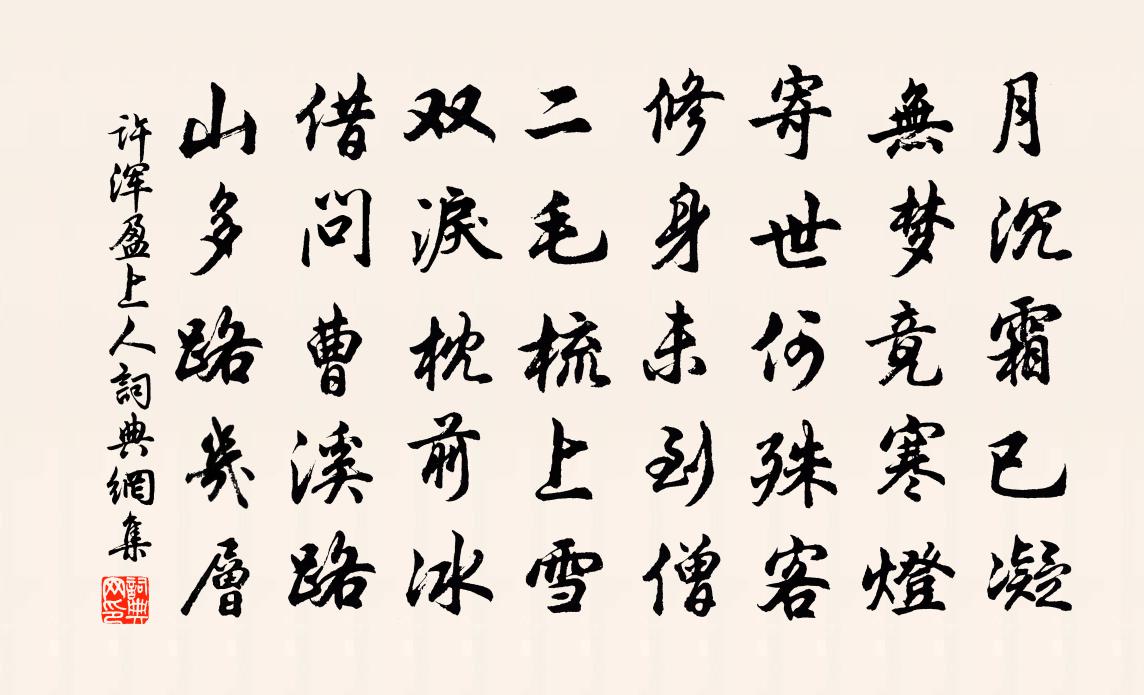 月沉霜已凝
無梦竟寒燈
寄世何殊客
修身未到僧
二毛梳上雪
双淚枕前冰
借問曹溪路
山多路幾層
许浑盈上人詞典網集
詞典网印